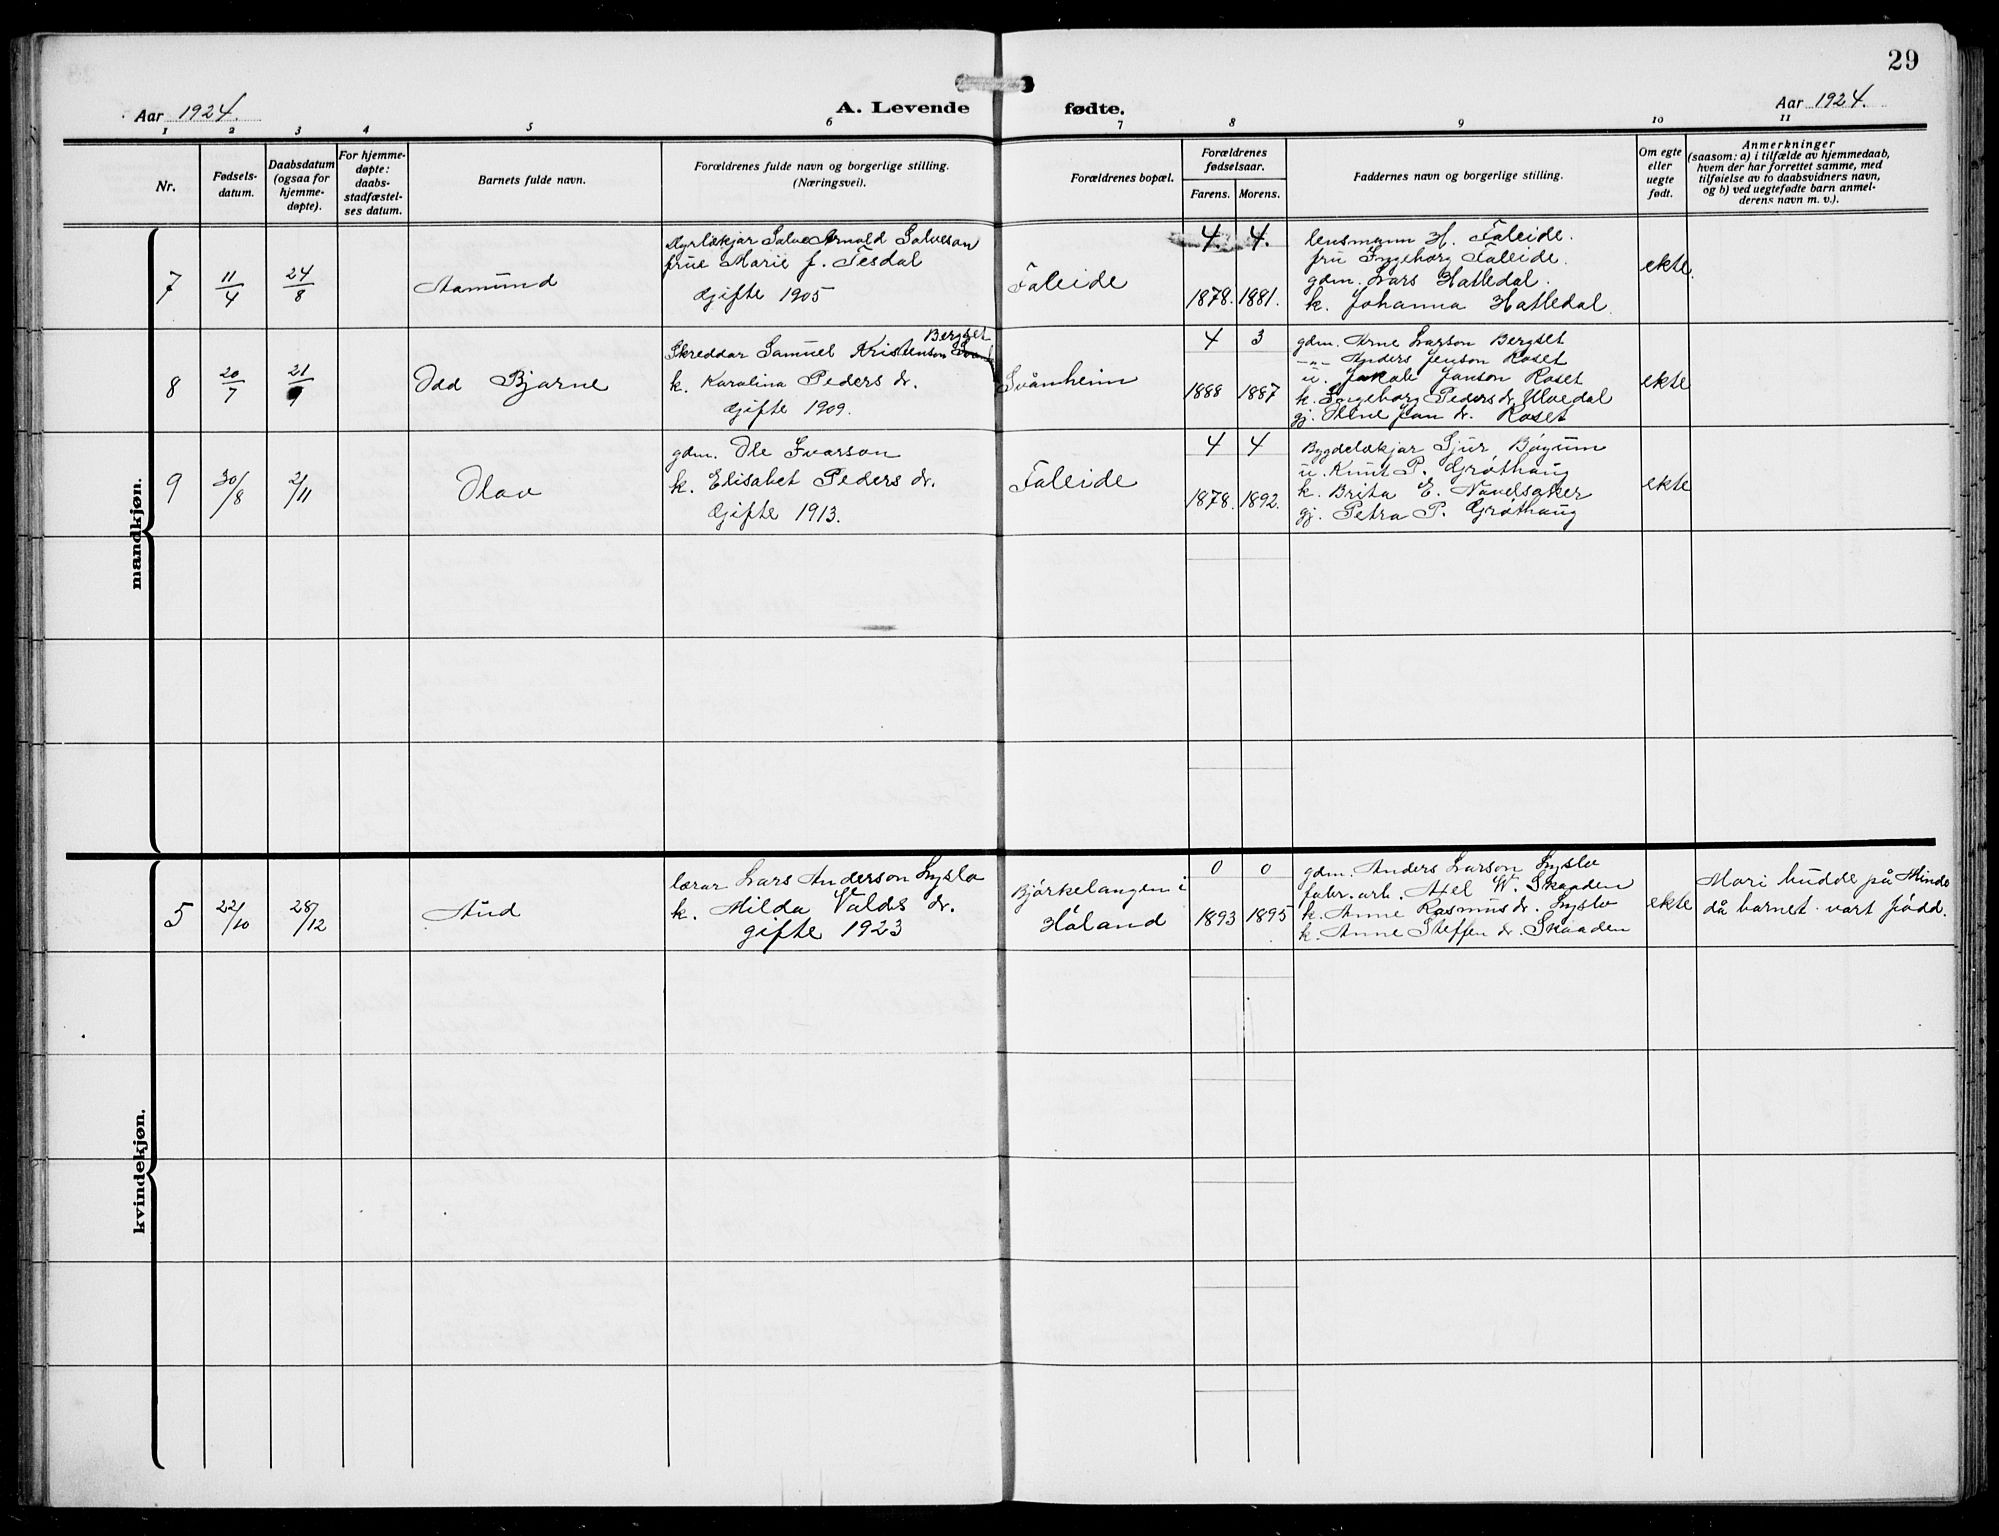 29
Aar 1924.
A. Levende fødte.
Aar 1924.
1 2 3 4 5 6 7 8 9 10 11
Nr.
Fødsels-
datum.
Daabsdatum
(ogsaa for
hjemme-
døpte).
For hjemme-
døpte:
daabs-
stadfæstel-
ses datum.
Barnets fulde navn.
Forældrenes fulde navn og borgerlige stilling.
(Næringsvei).
Forældrenes bopæl.
Forældrenes
fødselsaar.
Farens. Morens.
Faddernes navn og borgerlige stilling.
Om egte
eller
uegte
født.
Anmerkninger
(saasom: a) i tilfælde av hjemmedaab,
hvem der har forrettet samme, med
tilføielse av to daabsvidners navn,
og b) ved uegtefødte barn anmel-
derens navn m. v.).
mandkjøn.
7
11/4
24/8
Aamund
Dyrlækjar Salve Arnold Salveson
frue Marie f. Tesdal
Gifte 1905
Faleide
4. 4.
1878. 1881.
lensmann H. Faleide.
fru Ingeborg Faleide.
gdm. Lars Hatledal.
k. Johanna Hatledal.
ekte.
8
20/7
21/9
Odd Bjarne
Bergset
Skreddar Samuel Kristenson
k. Karolina Peders dr.
Gifte 1909.
Svåmheim
4 3
1888 1887
gdm. Arne Larson Bergset
-"- Anders Jenson Roset
u. Jakob Janson Roset
k. Ingeborg Peders dr.
gj. Stine Jan dr. Roset
ekte
9
30/8
2/11
Olav
gdm. Ole Ivarson
k. Elisabet Peders dr.
Gifte 1913.
Faleide
4 4
1878. 1892.
Bygdelækjar Sjur Bøyum
u. Knut P. Grøthaug
k. Brita E. Navelsaker
gj. Petra P. Grøthaug
ekte
kvindekjøn.
5
22/10
28/12
Aud
lærar Lars Anderson Lyslo
k. Milda Valds dr.
gifte 1923
Bjørkelangen i
Høland
0 0
1893 1895
gdm. Anders Larson Lyslo
fabr. arb. Axel W. Skaaden
k. Anne Rasmus dr. Lyslo
k. Anne Steffen dr. Skaaden
ekte
Mori budde på Minde
då barnet vart fødd.